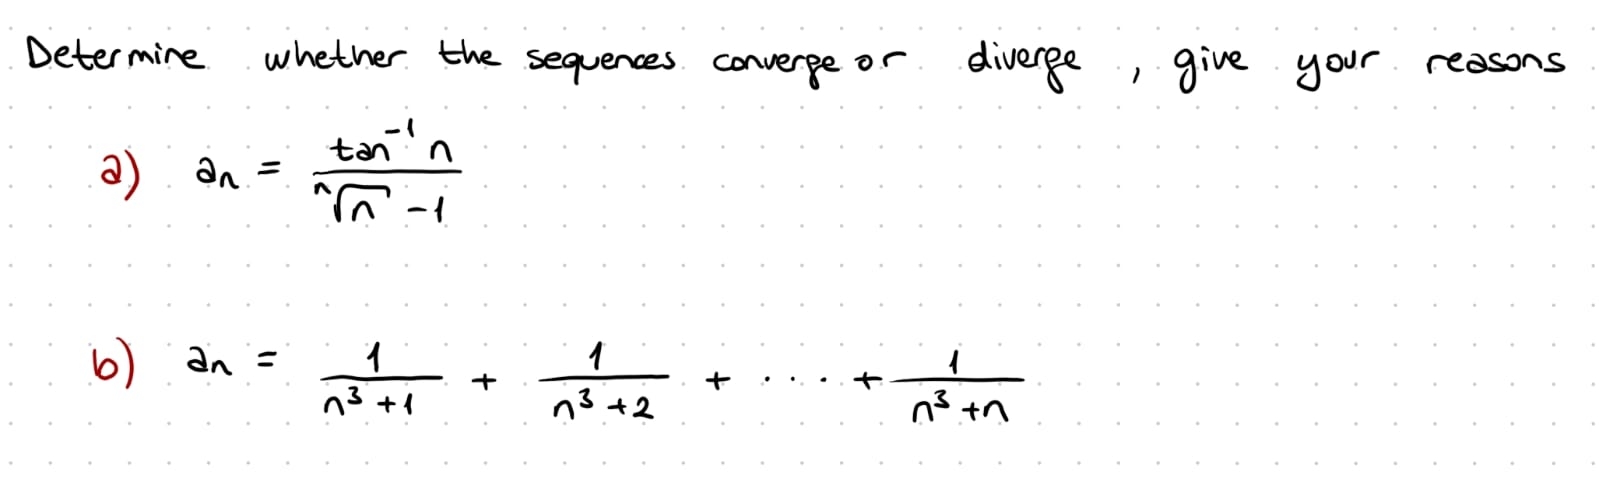 Determine whether the sequences converge or diverge, give your reasons
a) aₙ = tan⁻¹ n / (ⁿ√n - 1)
b) aₙ = 1/(n³+1) + 1/(n³+2) + ... + 1/(n³+n)